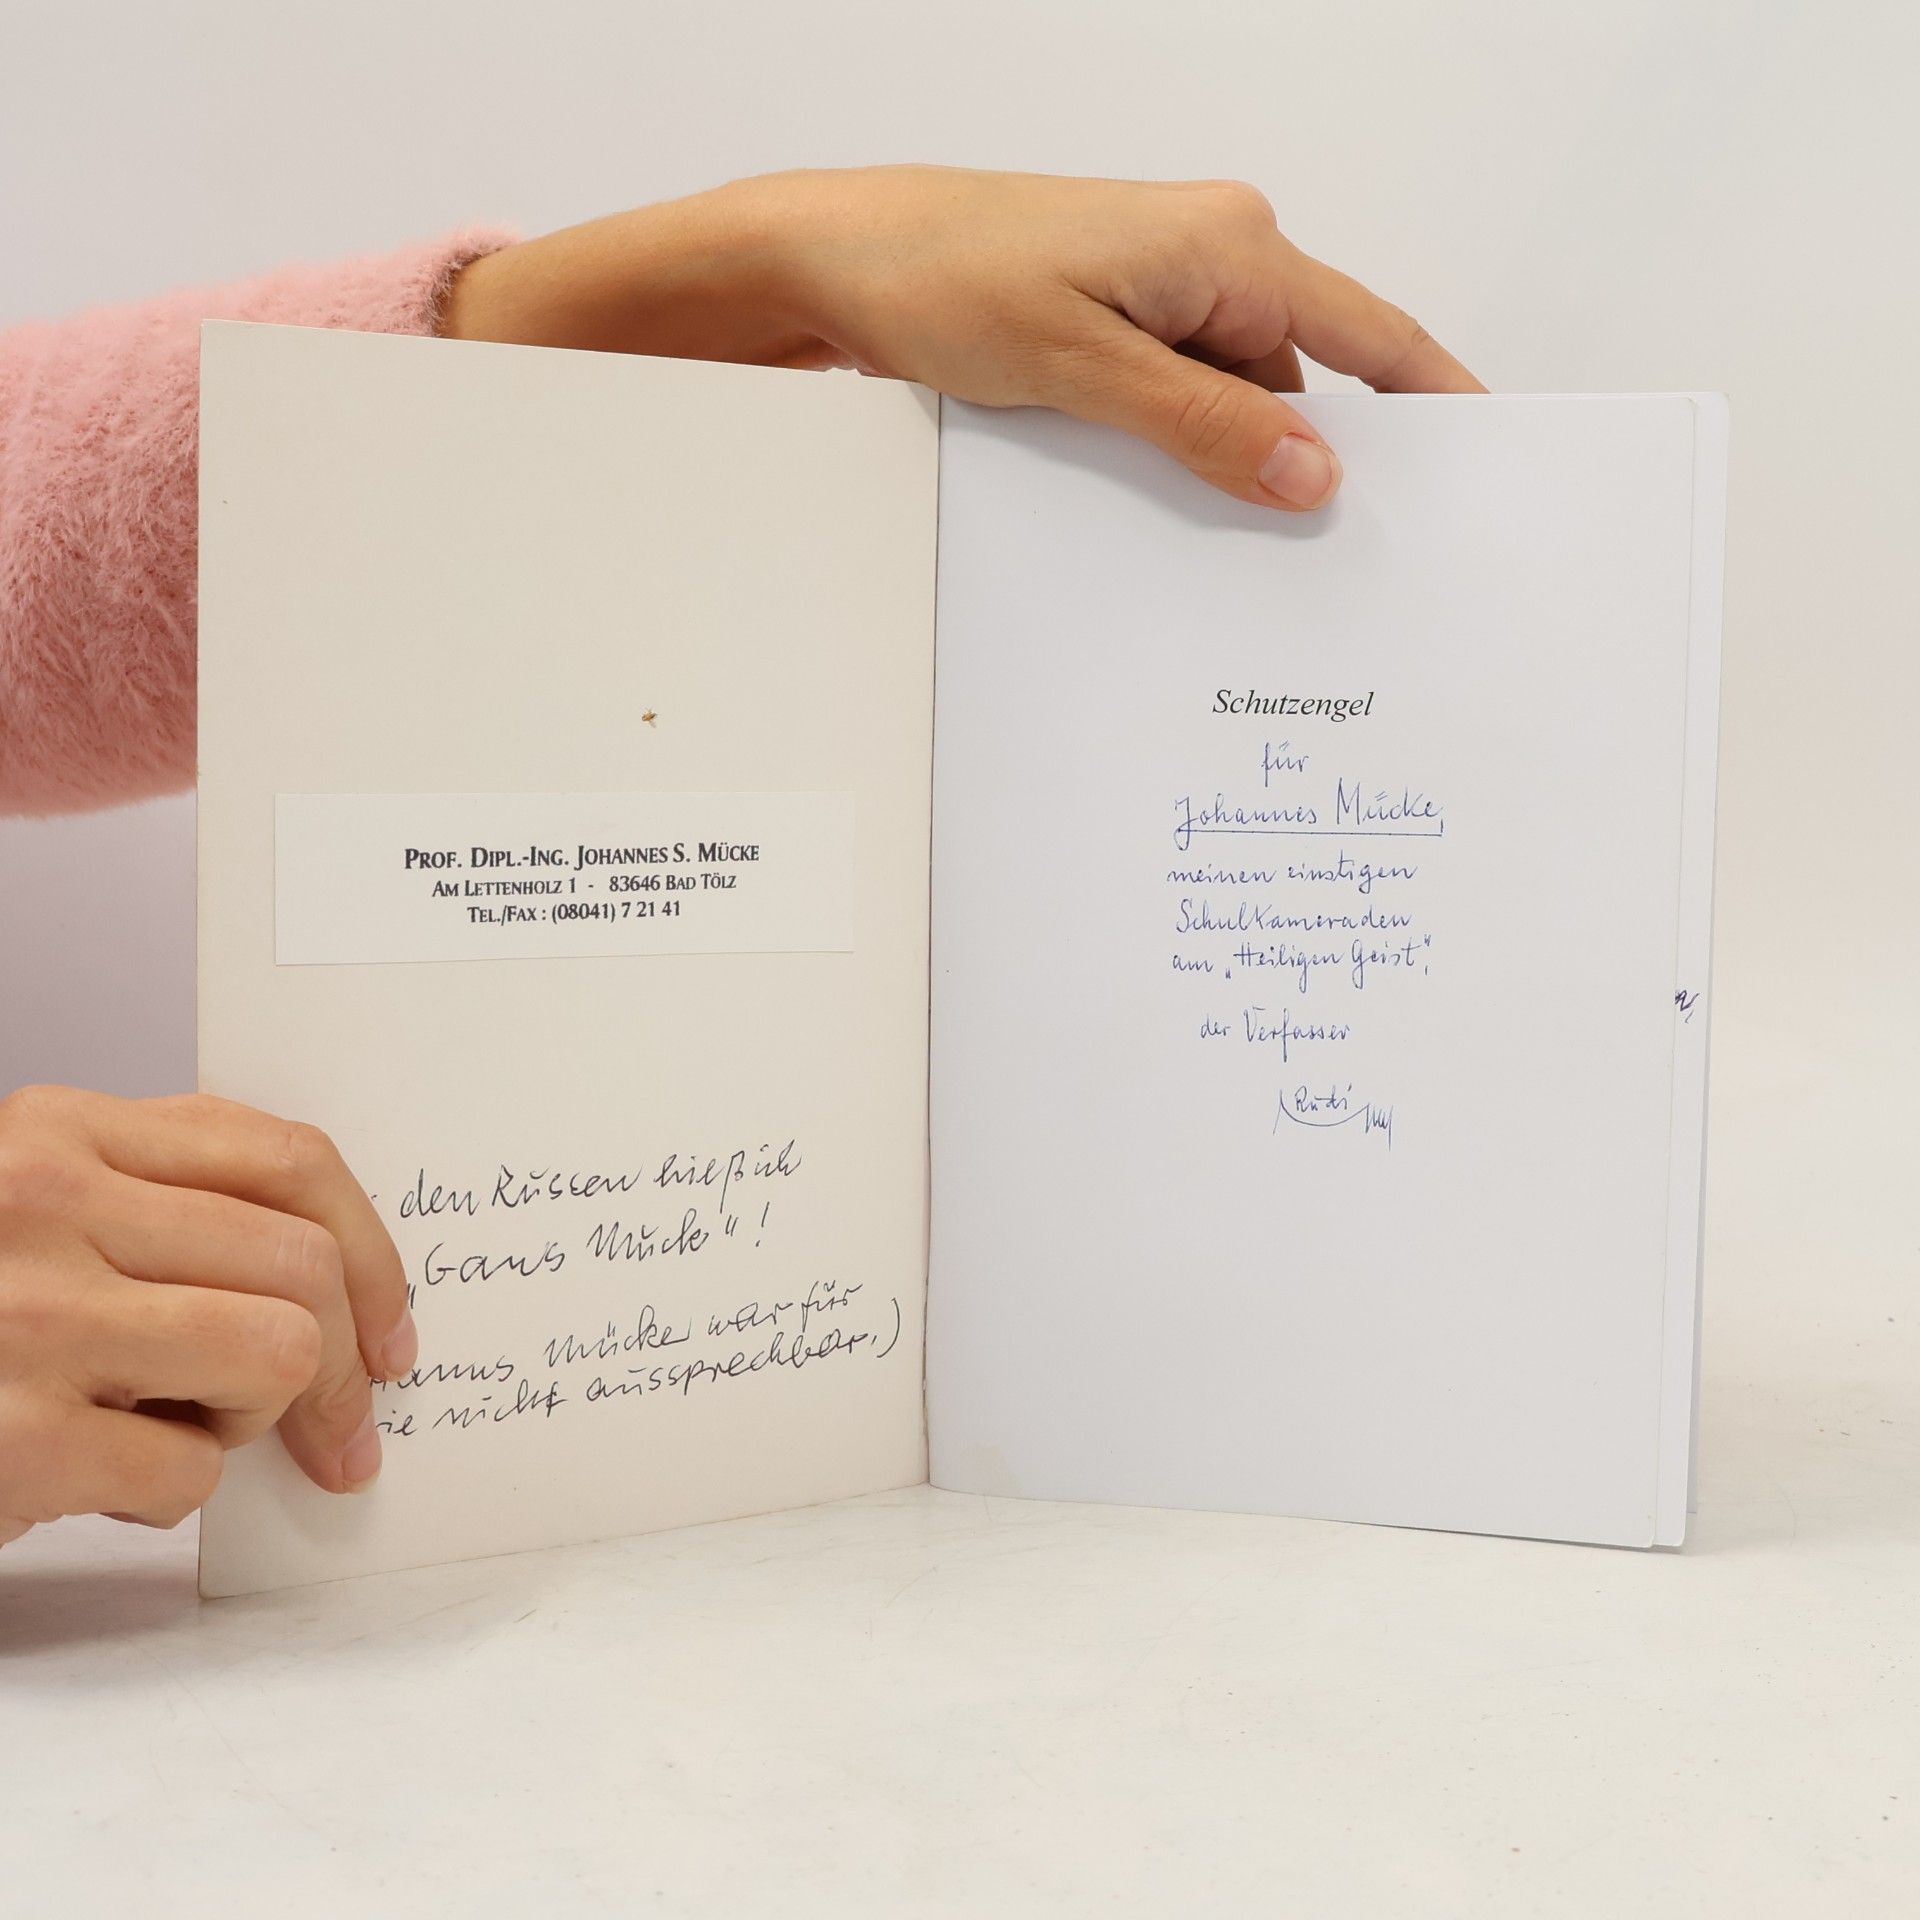 PROF. DIPL.-ING. JOHANNES S. MÜCKE
AM LETTENHOLZ 1 - 83646 BAD TÖLZ
TEL./FAX : (08041) 7 21 41
den Russen hieß ich
„Gans Muck"!
Mücke war für
nicht aussprechbar.)
Schutzengel
für
Johannes Mücke,
meinen einstigen
Schulkameraden
am „Heiligen Geist",
der Verfasser
Rudi